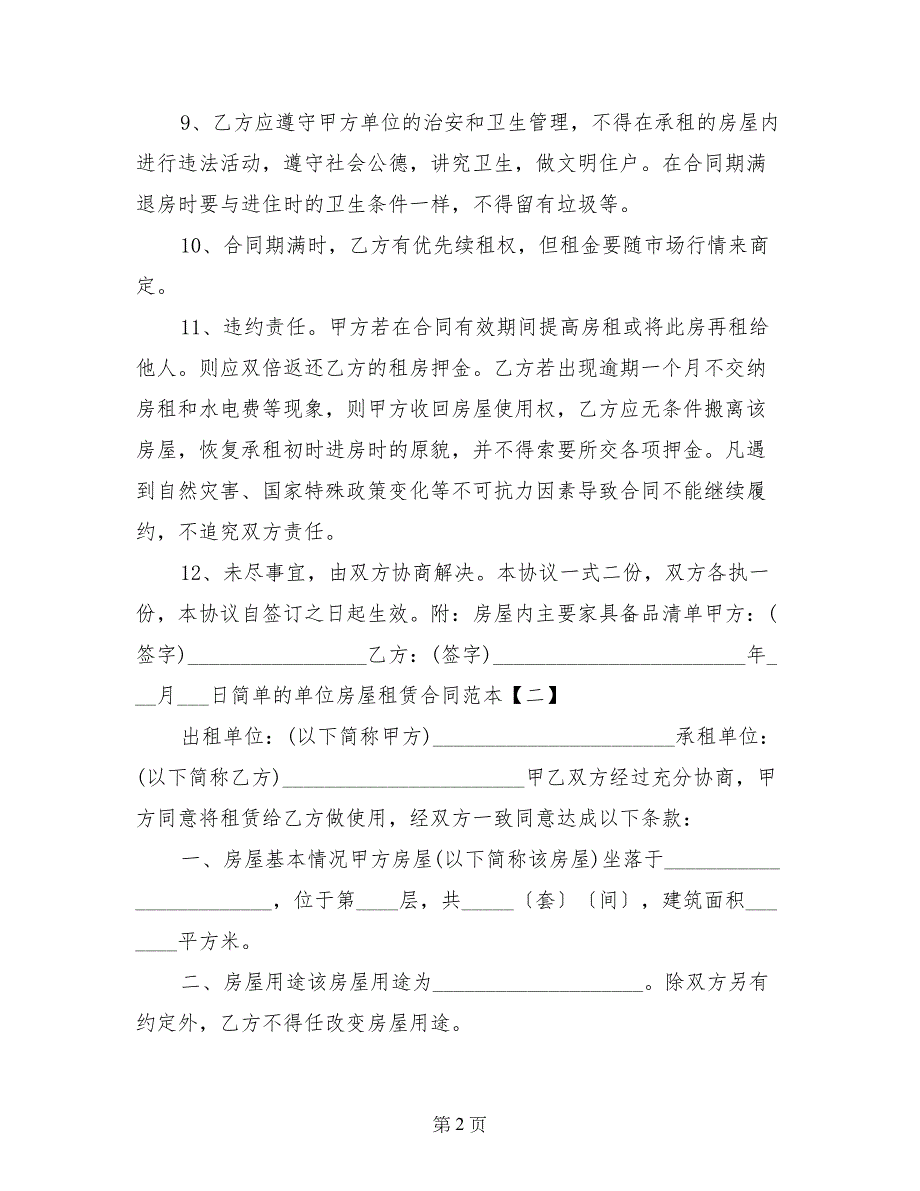 9、乙方应遵守甲方单位的治安和卫生管理，不得在承租的房屋内
进行违法活动，遵守社会公德，讲究卫生，做文明住户。在合同期满
退房时要与进住时的卫生条件一样，不得留有垃圾等。
10、合同期满时，乙方有优先续租权，但租金要随市场行情来商
定。
11、违约责任。甲方若在合同有效期间提高房租或将此房再租给
他人。则应双倍返还乙方的租房押金。乙方若出现逾期一个月不交纳
房租和水电费等现象，则甲方收回房屋使用权，乙方应无条件搬离该
房屋，恢复承租初时进房时的原貌，并不得索要所交各项押金。凡遇
到自然灾害、国家特殊政策变化等不可抗力因素导致合同不能继续履
约，不追究双方责任。
12、未尽事宜，由双方协商解决。本协议一式二份，双方各执一
份，本协议自签订之日起生效。附：房屋内主要家具备品清单甲方：(
签字)_________________乙方：(签字)________________________年_
__月___日简单的单位房屋租赁合同范本【二】
出租单位：(以下简称甲方)_______________________承租单位：
(以下简称乙方)_______________________甲乙双方经过充分协商，甲
方同意将租赁给乙方做使用，经双方一致同意达成以下条款：
一、房屋基本情况甲方房屋(以下简称该房屋)坐落于___________
_____________，位于第____层，共_____〔套〕〔间〕，建筑面积___
____平方米。
二、房屋用途该房屋用途为____________________。除双方另有
约定外，乙方不得任改变房屋用途。
第 2 页